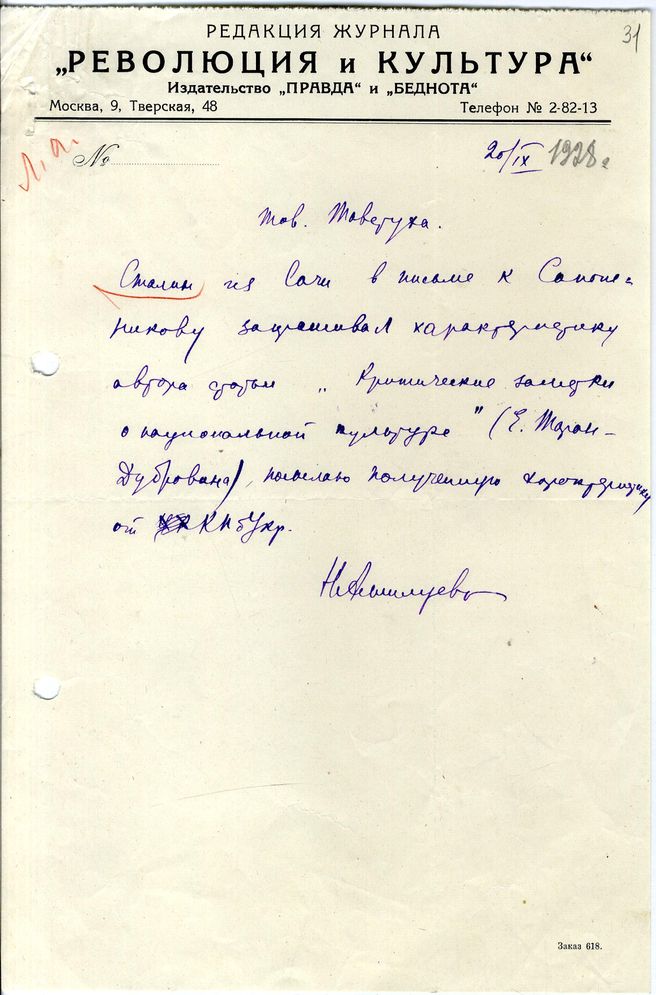 31
РЕДАКЦИЯ ЖУРНАЛА
„РЕВОЛЮЦИЯ и КУЛЬТУРА“
Издательство „ПРАВДА“ и „БЕДНОТА“
Москва, 9, Тверская, 48 Телефон № 2-82-13
Л. А.
№
20/IX 1928 г.
Тов. Товстуха.
Сталин из Сочи в письме к Сапож=
никову запрашивал характеристику
автора статьи „Критические заметки
о национальной культуре" (Е. Таран-
Дубровина), посылаю полученную характеристику
от КП(б)Укр.
Заказ 618.